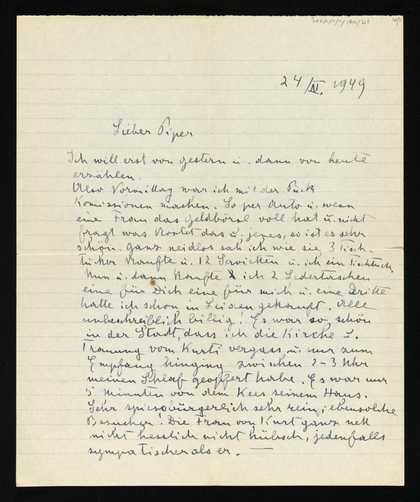 24/XI. 1949
Lieber Piper
Ich will erst von gestern u. dann von heute
erzählen.
Also Vormittag war ich mit der Puck
Komissionen machen. So per Auto u. wenn
eine Frau das Geldbörsl voll hat u. nicht
fragt was kostet das u. jenes, so ist es sehr
schön. Ganz neidlos sah ich wie sie 3 Tisch-
tücher kaufte u. 12 Servietten u. ich ein Tischtuch
Nun u. dann kaufte ich 2 Ledertaschen
eine für Dich eine für mich u. eine dritte
hatte ich schon in Leiden gekauft. Alle
unbeschreiblich billig! Es war so schön
in der Stadt, dass ich die Kirche u.
Trauung vom Kurti vergass, u. nur zum
Empfang hinging zwischen 2-3 Uhr
meinen Schlaf geopfert habe. Es war nur
5 Minuten von dem Kees seinem Haus.
Sehr spiessbürgerlich sehr rein, ebensolche
Besucher. Die Frau von Kurt ganz nett
nicht hesslich nicht hübsch, jedenfalls
sympatischer als er. —